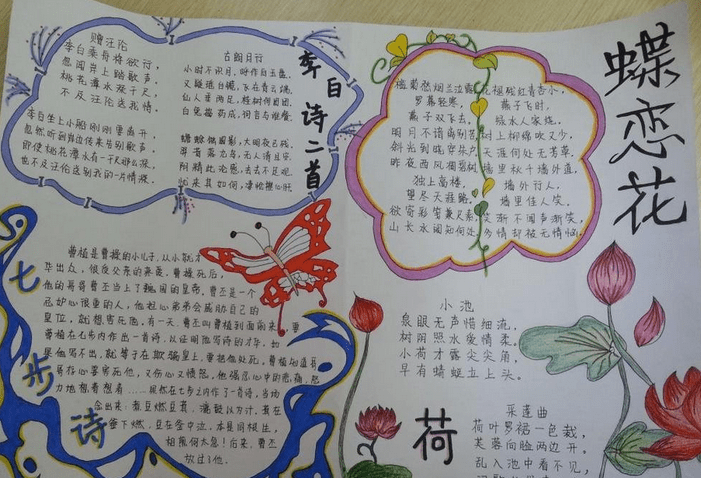 赠汪伦
李白乘舟将欲行,
忽闻岸上踏歌声。
桃花潭水深千尺,
不及汪伦送我情。
李白坐上小船刚刚要离开,
忽然听到岸边传来告别歌声。
即使桃花潭水有一千尺那么深,
也不及汪伦送别我的一片情深。
古朗月行
小时不识月,呼作白玉盘。
又疑瑶台镜,飞在青云端。
仙人垂两足,桂树何团团。
白兔捣药成,问言与谁餐。
蟾蜍蚀圆影,大明夜已残。
羿昔落九乌,天人清且安。
阴精此沦惑,去去不足观。
忧来其如何,凄怆摧心肝
李白诗二首
蝶恋花
槛菊愁烟兰泣露
罗幕轻寒,
燕子双飞去。
明月不谙离别苦
斜光到晓穿朱户
昨夜西风凋碧树
独上高楼,
望尽天涯路。
欲寄彩笺兼尺素
山长水阔知何处
花褪残红青杏小,
燕子飞时,
绿水人家绕。
枝上柳绵吹又少,
天涯何处无芳草。
墙里秋千墙外道,
墙外行人,
墙里佳人笑。
笑渐不闻声渐笑,
多情却被无情恼
七步诗
曹植是曹操的小儿子,从小就才
华出众,很受父亲的亲爱。曹操死后,
他的哥哥曹丕当上了魏国的皇帝。曹丕是一个
忌妒心很重的人,他担心弟弟会威胁自己的
皇位,就想害死他。有一天,曹丕叫曹植到面前来,要
曹植在七步内作出一首诗,以证明他写诗的才华。如
果他写不出,就等于在欺骗皇上,要把他处死。曹植知道哥
哥存心要害死他,又伤心又愤怒。他强忍心中的悲痛,努
力地想着想着……现然在七步之内作了一首诗,当场
念出来:煮豆燃豆萁,漉豉以为汁。萁在
釜下燃,豆在釜中泣。本是同根生,
相煎何太急!后来,曹丕
放过了他。
小池
泉眼无声惜细流,
树阴照水爱情柔。
小荷才露尖尖角,
早有蜻蜓立上头。
荷
采莲曲
荷叶罗裙一色裁,
芙蓉向脸两边开。
乱入池中看不见,